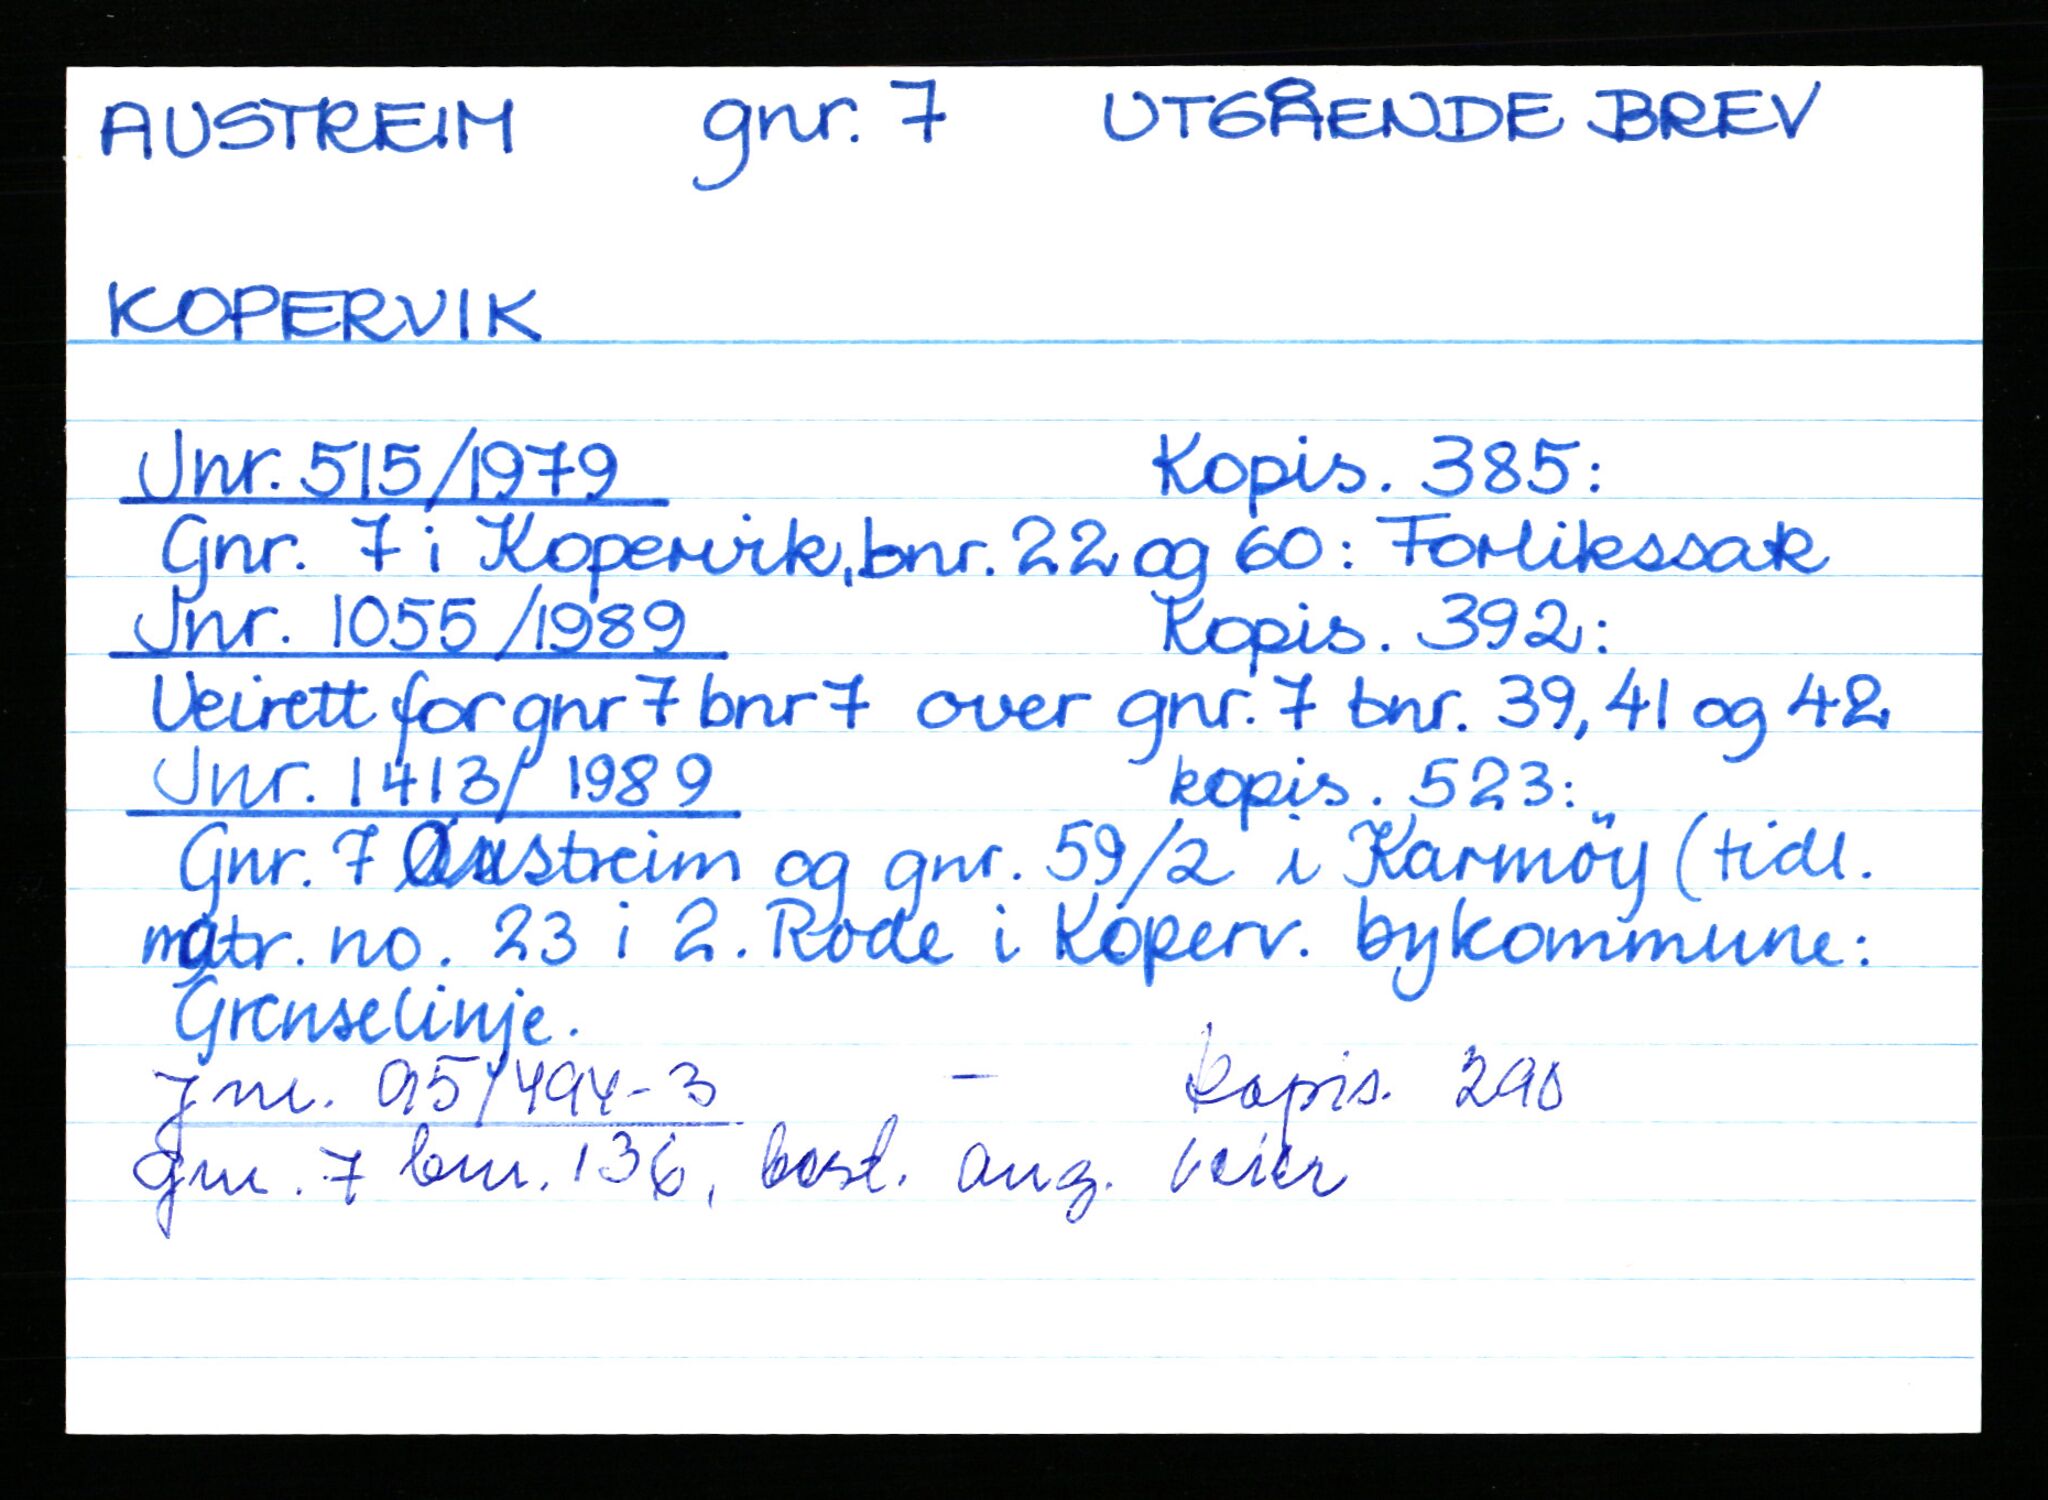 AUSTREIM gnr. 7 UTGÅENDE BREV
KOPERVIK
Jnr. 515/1979 Kopis. 385:
Gnr. 7 i Kopervik, bnr. 22 og 60: Forlikssak
Jnr. 1055/1989 Kopis. 392:
Veirett for gnr 7 bnr 7 over gnr. 7 bnr. 39, 41 og 42
Jnr. 1413/1989 kopis. 523:
Gnr. 7 Austreim og gnr. 59/2 i Karmöy (tidl.
matr. no. 23 i 2. Rode i Koperv. bykommune:
Grenselinje.
Jnr. 95/494-3 - kopis. 290
gnr. 7 bnr. 136, best. ang. veier